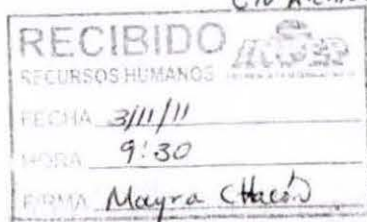 RECIBIDO
RECURSOS HUMANOS
FECHA 3/11/11
HORA 9:30
FIRMA Mayra Chacón